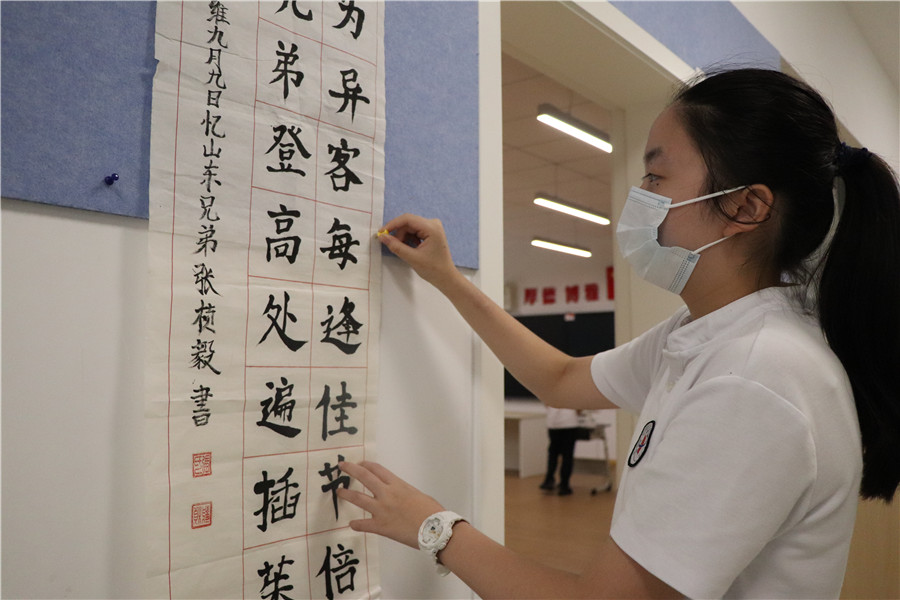 为异客每逢佳节倍
兄弟登高处遍插茱
维九月九日忆山东兄弟张桢毅書
厚德 博雅